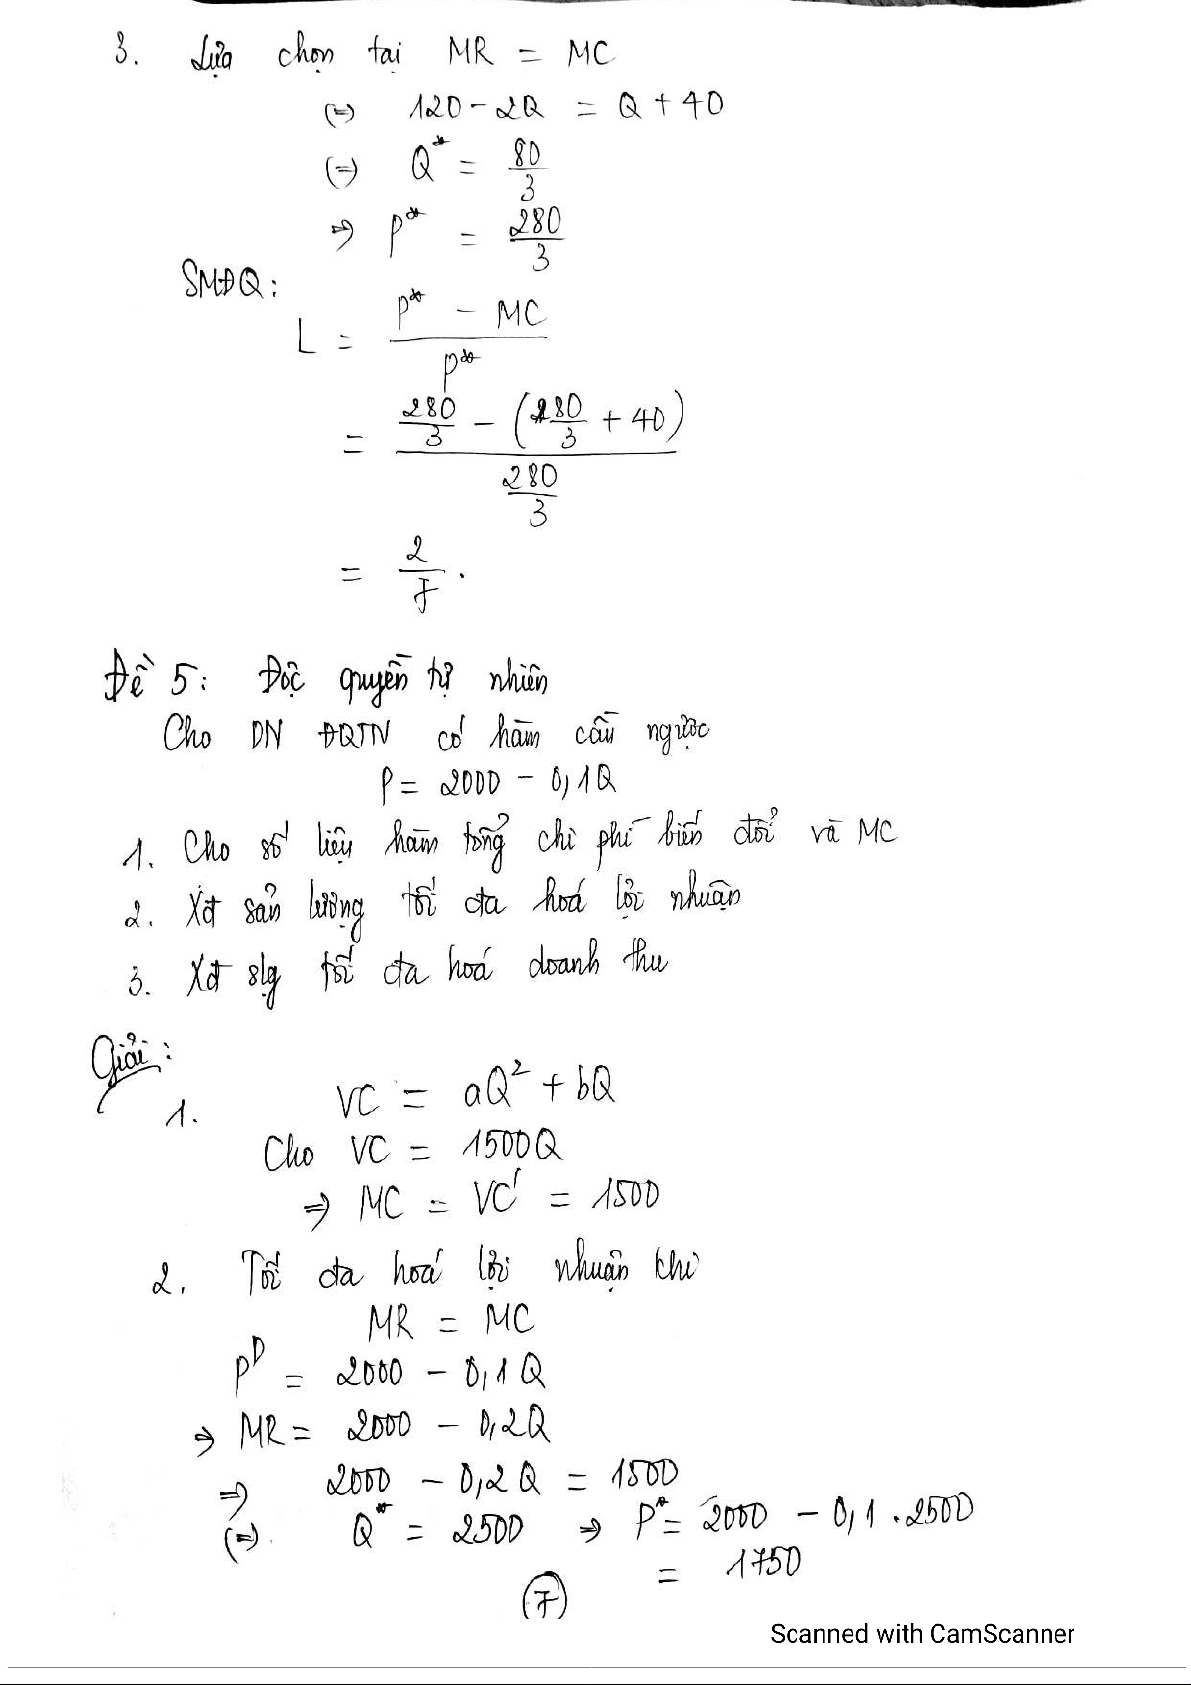 3. Lựa chọn tại MR = MC
(=) 120 - 2Q = Q + 40
(=) Q* = 80/3
=> P* = 280/3
SMĐQ:
L = (P* - MC)/P*
= (280/3 - (280/3 + 40))/(280/3)
= 2/7.
Đề 5: Độc quyền tự nhiên
Cho DN ĐQTN có hàm cầu ngược
P = 2000 - 0,1Q
1. Cho số liệu hàm tổng chi phí biến đổi và MC
2. Xđ sản lượng tối đa hoá lợi nhuận
3. Xđ slg tối đa hoá doanh thu
Giải:
1. VC = aQ² + bQ
Cho VC = 1500Q
=> MC = VC' = 1500
2. Tối đa hoá lợi nhuận khi
MR = MC
P^D = 2000 - 0,1Q
=> MR = 2000 - 0,2Q
=> 2000 - 0,2Q = 1500
(=) Q* = 2500 => P* = 2000 - 0,1.2500
= 1750
7
Scanned with CamScanner